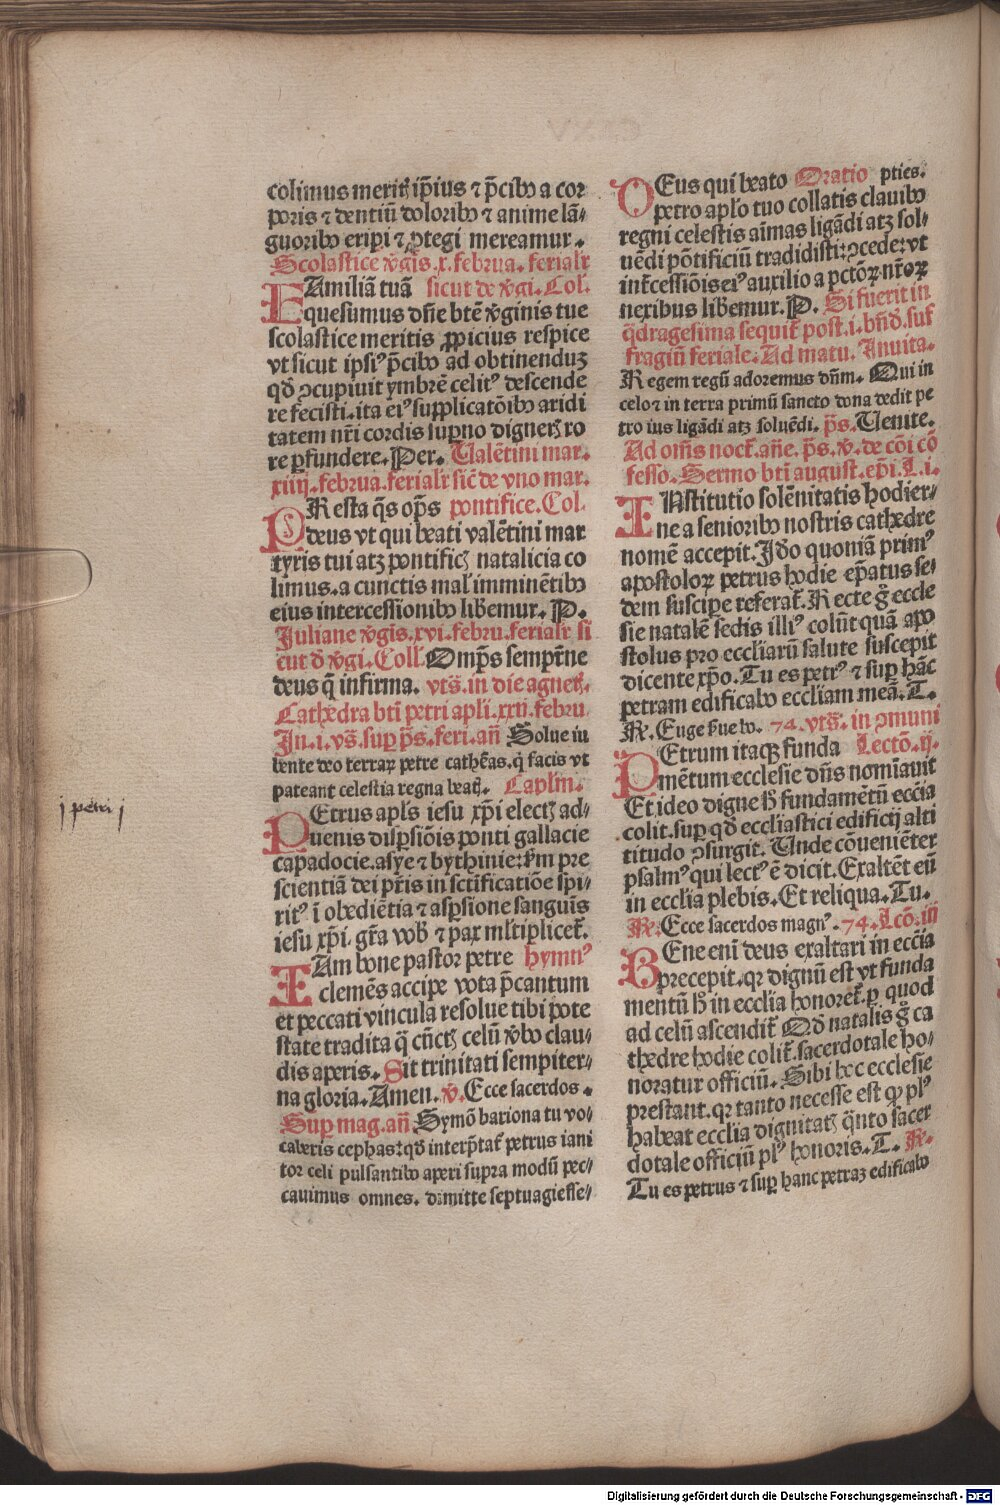 colimus meritꝭ ip̃ius ⁊ p̃cibꝰ a cor
poris ⁊ dentiũ doloribꝰ ⁊ anime lã-
guoribꝰ eripi ⁊ ꝓtegi mereamur.
Scolastice v̾gis.x.februa. ferialr̃
FAmiliã tuã sicut de v̾gi. Col.
quesumus dñe btẽ v̾ginis tue
scolastice meritis ꝓpicius respice
vt sicut ipsiꝰ p̃cibꝰ ad obtinenduꝫ
qď ꝯcupiuit ymbrẽ celitꝰ descende
re fecisti.ita eiꝰ supplicatõibꝰ aridi
tatem nr̃i cordis sup̱no dignerꝭ ro
re p̱fundere. Per. Ualẽtini mar.
xiiij.februa.ferialr̃ sic̃ de vno mar.
PResta q̃s op̃s pontifice. Col.
deus vt qui beati valẽtini mar
tyris tui atꝫ pontificꝭ natalicia co
limus.a cunctis mal' imminẽtibꝰ
eius intercessionibꝰ liberemur. P.
Juliane v̾gis.xvi.febru.ferialr̃ si
cut ď v̾gi. Coll. Omp̃s sempit̾ne
deus q̃ infirma. vts̃. in die agnetꝭ.
Cathedra bti petri apli.xxii.febru.
Jn.i.vs̃.sup̱ p̃s.feri.añ Solue iu
bente deo terraꝝ petre cathẽas.q̃ facis vt
pateant celestia regna beatꝭ. Caplm̃.
PEtrus apls̃ iesu xp̃i electꝭ ad-
uenis disp̱siõis ponti gallacie
capadocie.asye ⁊ bythinie: ẜm pre
scientiã dei pr̃is in sctĩficatiõe spi-
ritꝰ ĩ obediẽtia ⁊ asp̱sione sanguis
iesu xp̃i. gr̃a vob̃ ⁊ pax ml̃tiplicet̃.
IAm bone pastor petre hymnꝰ
clemẽs accipe vota p̃cantum
et peccati vincula resolue tibi pote
state tradita q̃ cũctꝭ celũ v̾bo clau-
dis aperis. Sit trinitati sempiter-
na gloria. Amen. v̾. Ecce sacerdos.
Sup̱ mag.añ Symõ bariona tu vo-
caberis cephas: qď interp̃tat̃ petrus iani
tor celi pulsantibꝰ aperi supra modũ pec-
cauimus omnes. dimitte septuagiesse-
j petri j
DEus qui beato Oratio pties.
petro aplo tuo collatis clauibꝰ
regni celestis aĩmas ligãdi atꝫ sol-
uẽdi põtificiũ tradidisti: ꝯcede: vt
int̾cessiõis eiꝰ auxilio a pctõꝝ nr̃oꝝ
nexibus liberemur. P. Si fuerit in
q̃dragesima sequit̃ post.i.bñď.suf
fragiũ feriale. Ad matu. Jnuita.
Regem regũ adoremus dñm. Qui in
celo ⁊ in terra primũ sancto dona dedit pe
tro ius ligãdi atꝫ soluẽdi. p̃s. Uenite.
Ad om̃s noct̃.añe. p̃s. v̾. de cõi cõ
fesso. Sermo bti august. ep̃i. L.i.
INstitutio solẽnitatis hodier-
ne a senioribꝰ nostris cathedre
nomẽ accepit. Jďo quoniã primꝰ
apostoloꝝ petrus hodie ep̃atus se-
dem suscipe referat̃. Recte g̃ eccle
sie natalẽ sedis illiꝰ colũt quã apo
stolus pro eccliarũ salute suscepit
dicente xp̃o. Tu es petrꝰ ⁊ sup̱ hãc
petram edificabo eccliam meã. T.
R̃. Euge ẜue bo. 74. vts̃. in ꝯmuni
PEtrum itaqꝫ funda Lectõ.ij.
mẽtum ecclesie dñs nomiauit
Et ideo digne h̃ fundamẽtũ eccĩa
colit.sup̱ qď eccliastici edificij alti
titudo ꝯsurgit. Unde cõueniẽter
psalmꝰ qui lectꝰ ẽ dicit. Exaltẽt eũ
in ecclia plebis. Et reliqua. Tu.
R̃. Ecce sacerdos magnꝰ. 74. Lcõ.iij
BEne eni deus exaltari in eccĩa
precepit.qꝛ dignũ est vt funda
mentũ h̃ in ecclia honoret̃.p̱ quod
ad celũ ascendit̃ Qď natalis g̃ ca
thedre hodie colit̃.sacerdotale ho-
noratur officiũ. Sibi hoc ecclesie
prestant.qꝛ tanto necesse est qꝙ plꝰ
habeat ecclia dignitatꝭ q̃nto sacer
dotale officiũ plꝰ honoris. T. R̃.
Tu es petrus ⁊ sup̱ hanc petraꝫ edificabo
Digitalisierung gefördert durch die Deutsche Forschungsgemeinschaft - DFG